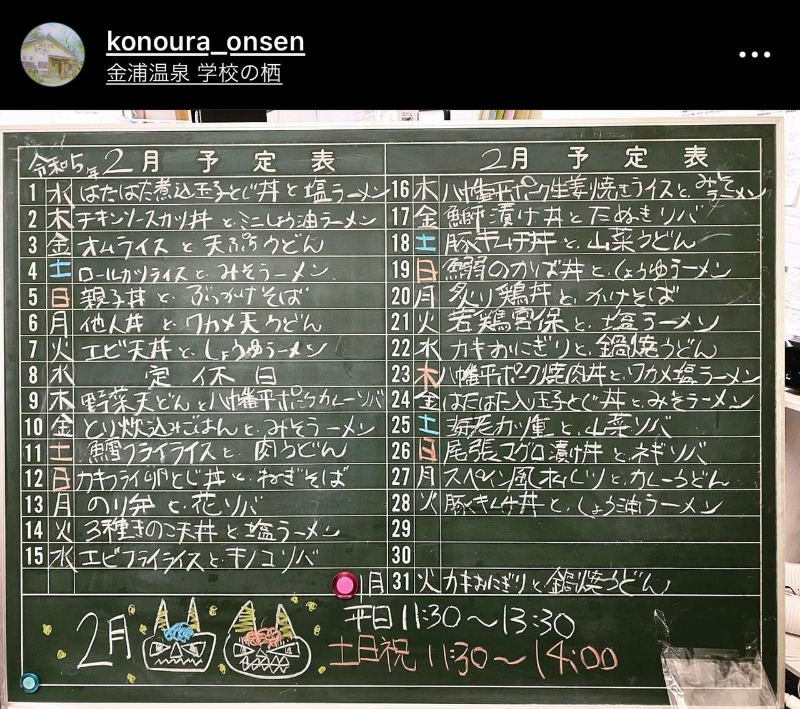 konoura_onsen
金浦温泉 学校の栖
令和5年 2月 予定表
1 水 はたはた煮込玉子とじ丼と塩ラーメン
2 木 チキンソースカツ丼とミニしょう油ラーメン
3 金 オムライスと天ぷらうどん
4 土 ロールカツライスと.みそラーメン
5 日 親子丼と.ぶっかけそば
6 月 他人丼とワカメ天うどん
7 火 エビ天丼と.しょうゆラーメン
8 水 定休日
9 木 野菜天どんと八幡平ポークカレーソバ
10 金 とり炊込みごはんと.みそラーメン
11 土 鱈フライライスと.肉うどん
12 日 カキフライ卵とじ丼と.ねぎそば
13 月 のり弁と.花ソバ
14 火 3種きのこ天丼と塩ラーメン
15 水 エビフライライスと.キノコソバ
2月 予定表
16 木 八幡平ポーク生姜焼きライスと.みそラーメン
17 金 鰤漬け丼とたぬきソバ
18 土 豚キムチ丼と.山菜うどん
19 日 のかば丼と.しょうゆラーメン
20 月 炙り鶏丼と.かけそば
21 火 若鶏 と.塩ラーメン
22 水 カキおにぎりと.鍋焼うどん
23 木 八幡平ポーク焼肉丼と.ワカメ塩ラーメン
24 金 はたはた入玉子とじ丼と.みそラーメン
25 土 海老カツ重と.山菜ソバ
26 日 尾張マグロ漬け丼と.ネギソバ
27 月 スペイン風 と.カレーうどん
28 火 豚キムチ丼と.しょう油ラーメン
29
30
1月 31 火 カキおにぎりと鍋焼うどん
2月
平日 11:30〜13:30
土日祝 11:30〜14:00